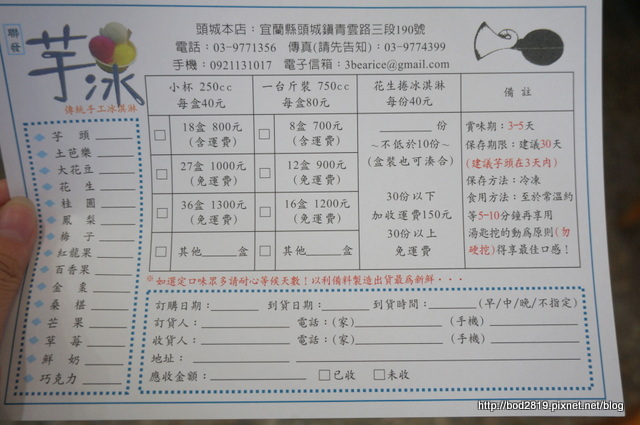 聯發
芋冰
傳統手工冰淇淋
頭城本店：宜蘭縣頭城鎮青雲路三段190號
電話：03-9771356 傳真(請先告知)：03-9774399
手機：0921131017 電子信箱：3bearice@gmail.com
芋頭
土芭樂
大花豆
花生
桂圓
鳳梨
梅子
紅龍果
百香果
金棗
桑椹
芒果
草莓
鮮奶
巧克力
小杯 250cc 每盒40元
一台斤裝 750cc 每盒80元
花生捲冰淇淋 每份40元
備註
□ 18盒 800元 (含運費)
□ 8盒 700元 (含運費)
□ 27盒 1000元 (免運費)
□ 12盒 900元 (免運費)
□ 36盒 1300元 (免運費)
□ 16盒 1200元 (免運費)
□ 其他____盒
□ 其他____盒
______份
~不低於10份~
(盒裝也可湊合)
30份以下
加收運費150元
30份以上
免運費
賞味期：3-5天
保存期限：建議30天
(建議芋頭在3天內)
保存方法：冷凍
食用方法：至於常溫約
等5-10分鐘再享用
湯匙挖的動為原則(勿
硬挖)得享最佳口感！
※如選定口味眾多請耐心等候天數！以利備料製造出貨最為新鮮・・・
訂購日期：______到貨日期：______到貨時間：______(早/中/晚/不指定)
訂貨人：______ 電話：(家)______ (手機)______
收貨人：______ 電話：(家)______ (手機)______
地址：______
應收金額：______ □已收 □未收
http://bod2819.pixnet.net/blog